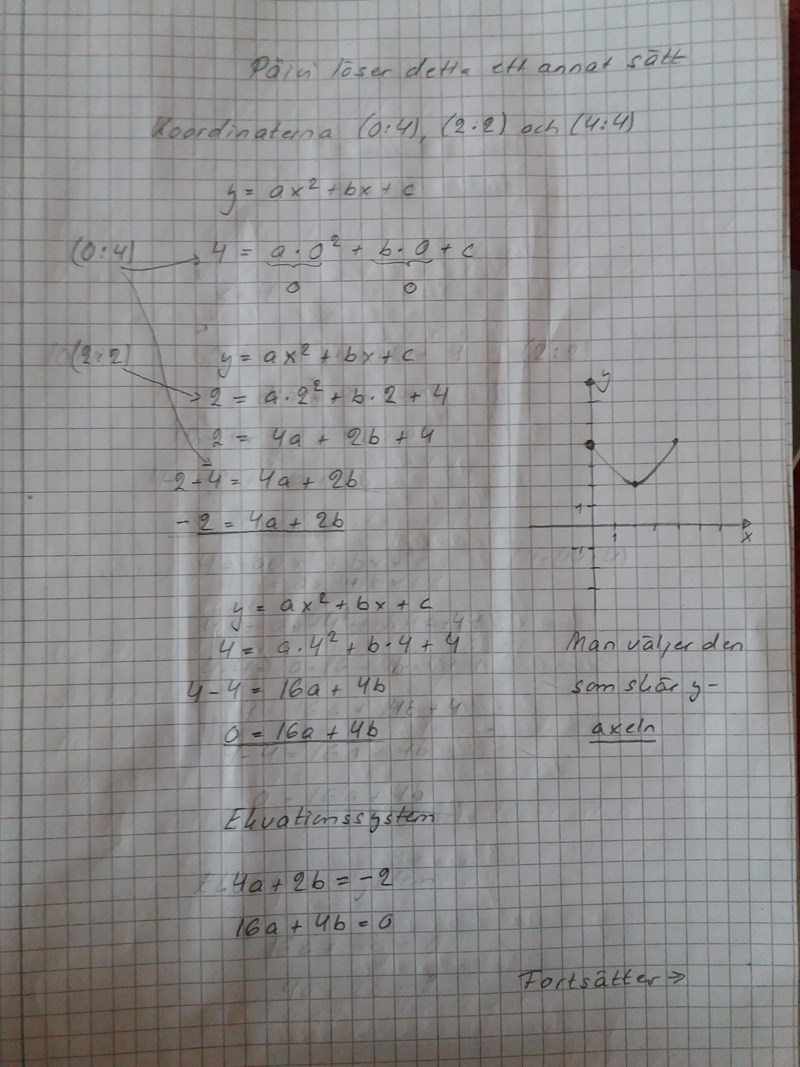 löser detta ett annat sätt
Koordinaterna (0:4), (2:2) och (4:4)
y = ax² + bx + c
(0:4) 4 = a·0² + b·0 + c
0 0
(2:2) y = ax² + bx + c
2 = a·2² + b·2 + 4
2 = 4a + 2b + 4
2-4 = 4a + 2b
-2 = 4a + 2b
y
1
1
x
-1
y = ax² + bx + c
4 = a·4² + b·4 + 4
4-4 = 16a + 4b
0 = 16a + 4b
Man väljer den
som skär y-
axeln
Ekvationssystem
4a + 2b = -2
16a + 4b = 0
Fortsätter →